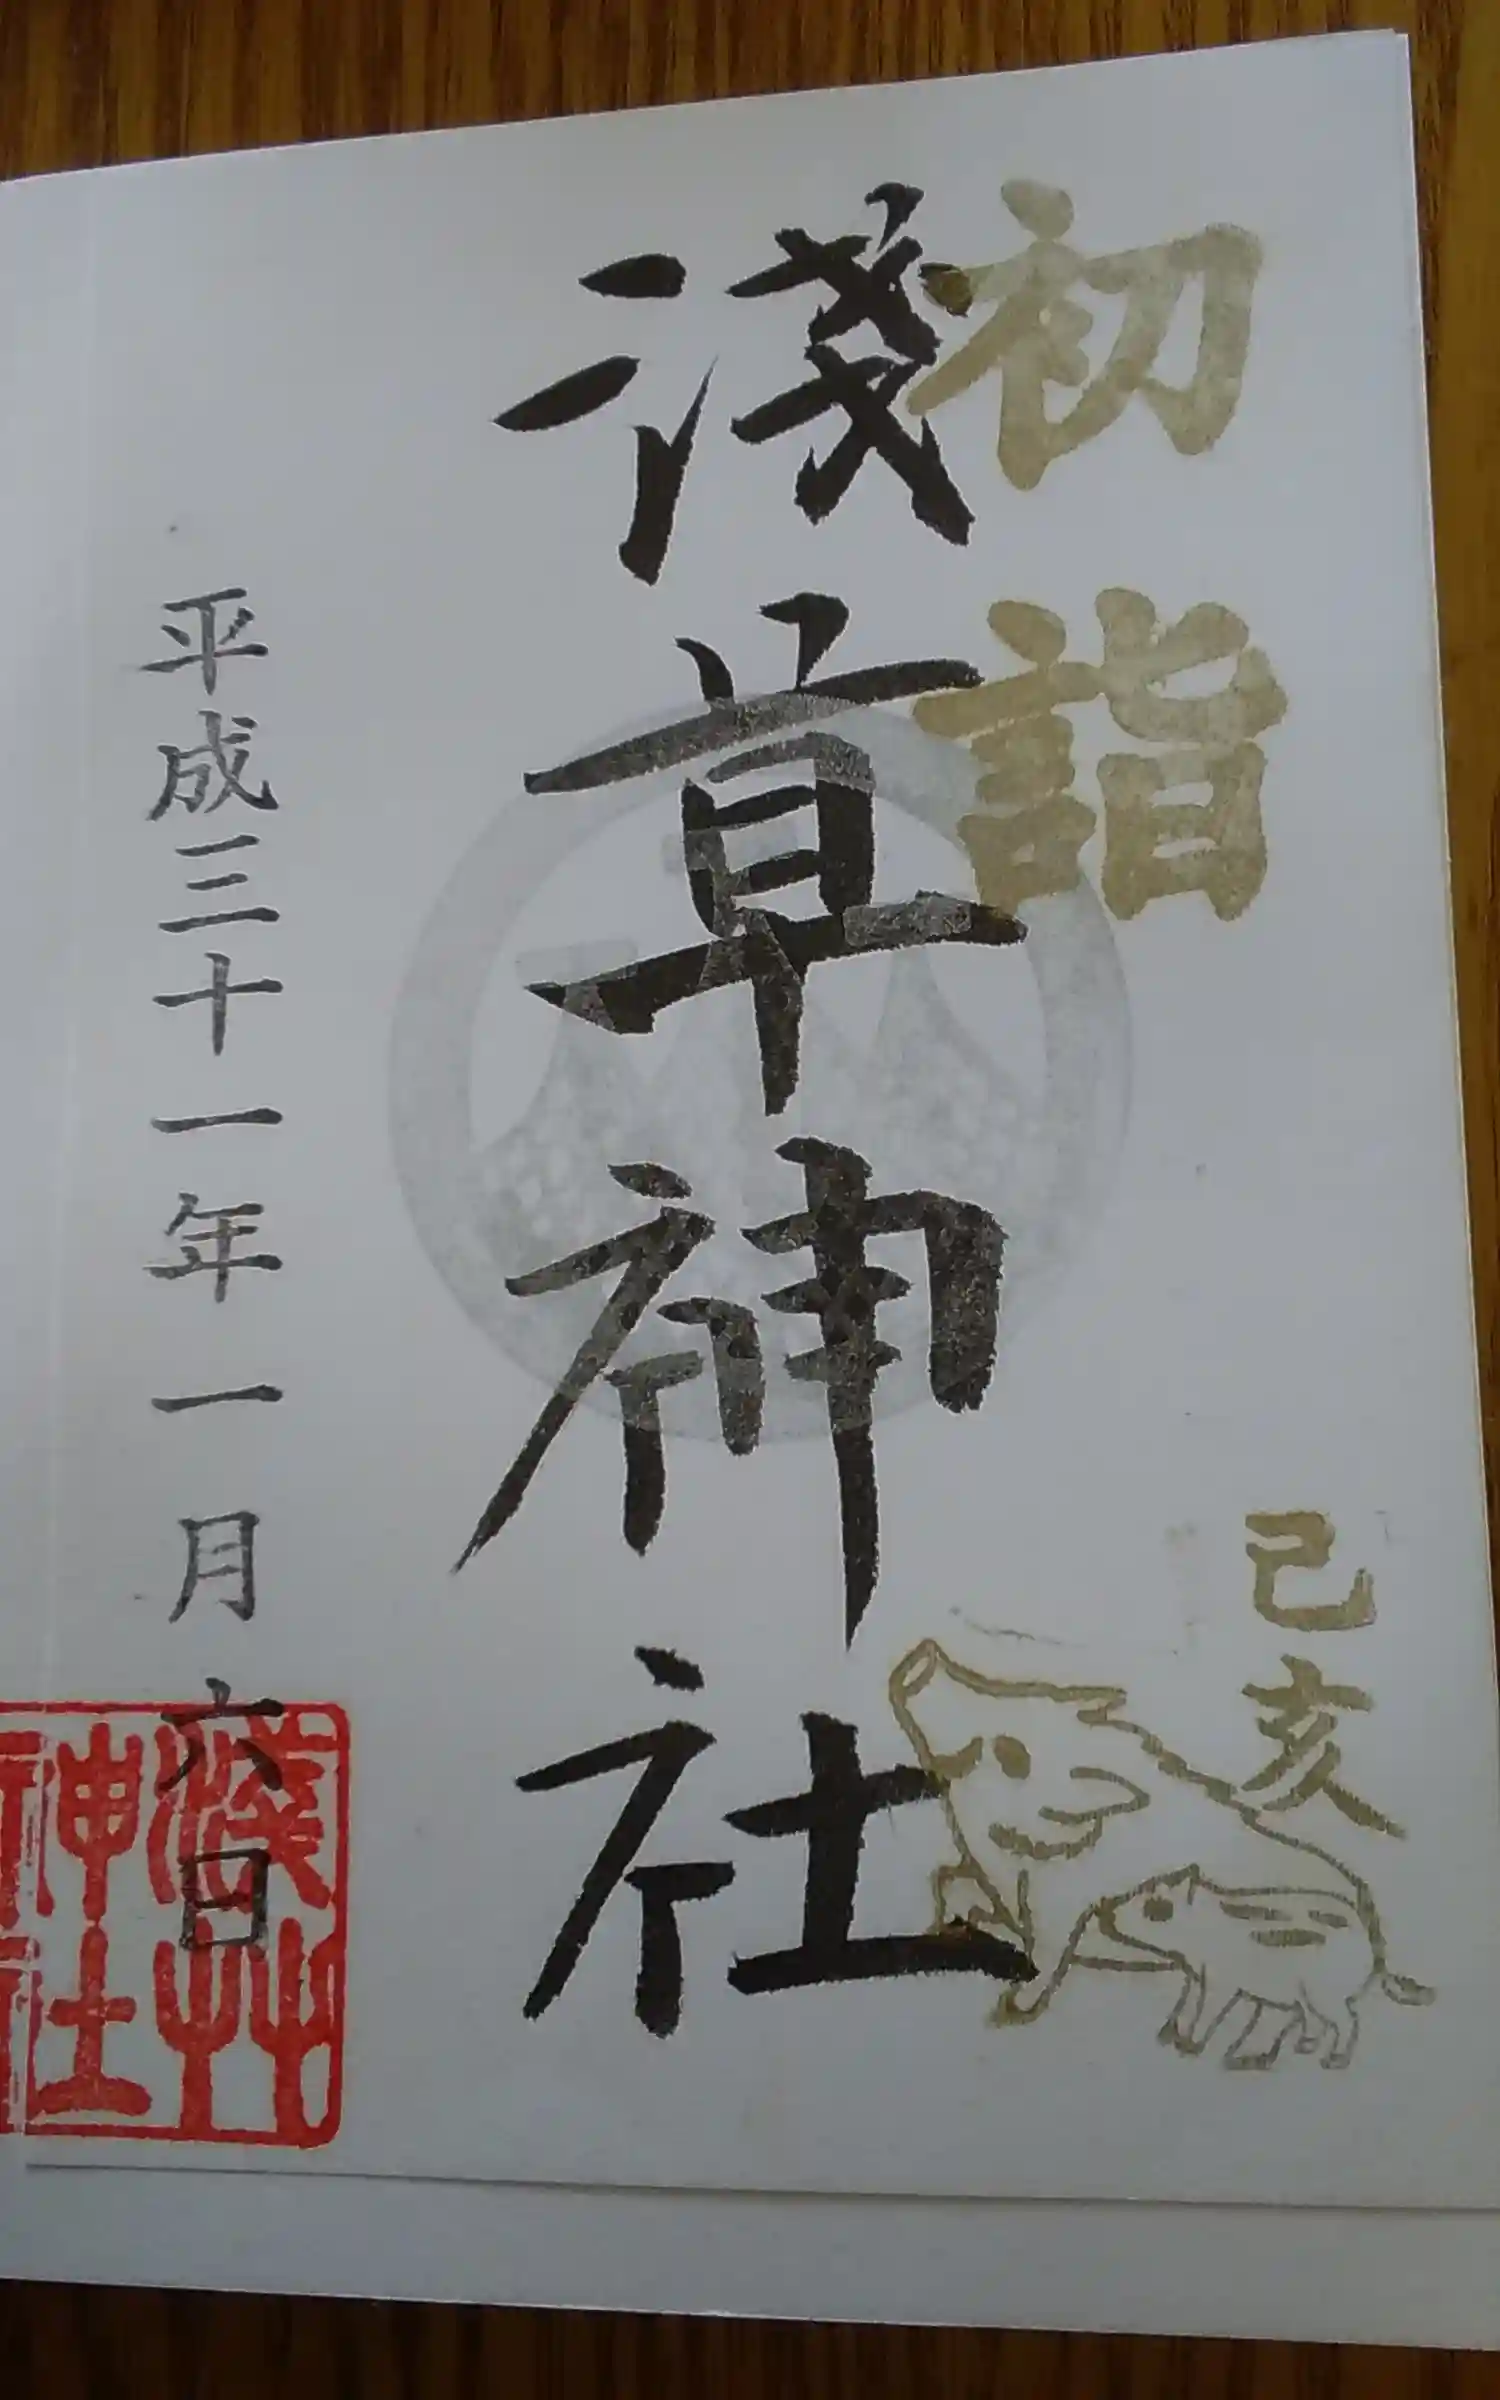 初詣
己亥
淺草神社
平成三十一年一月六日
淺艸
神社